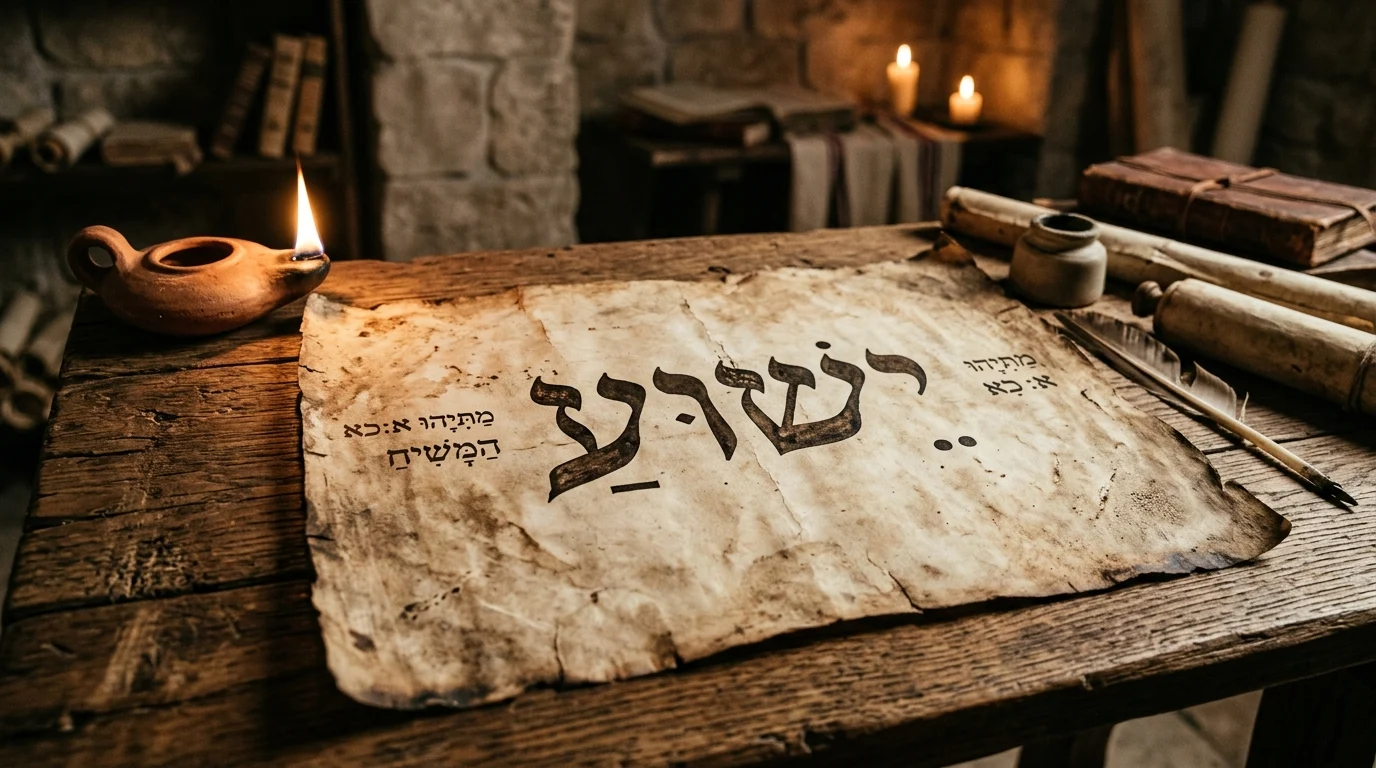 מַתִּיָהוּ
א: כִא
יֵשׁוּעַ
מַתִּיָהוּ א:כא
הַמָּשִׁיחַ